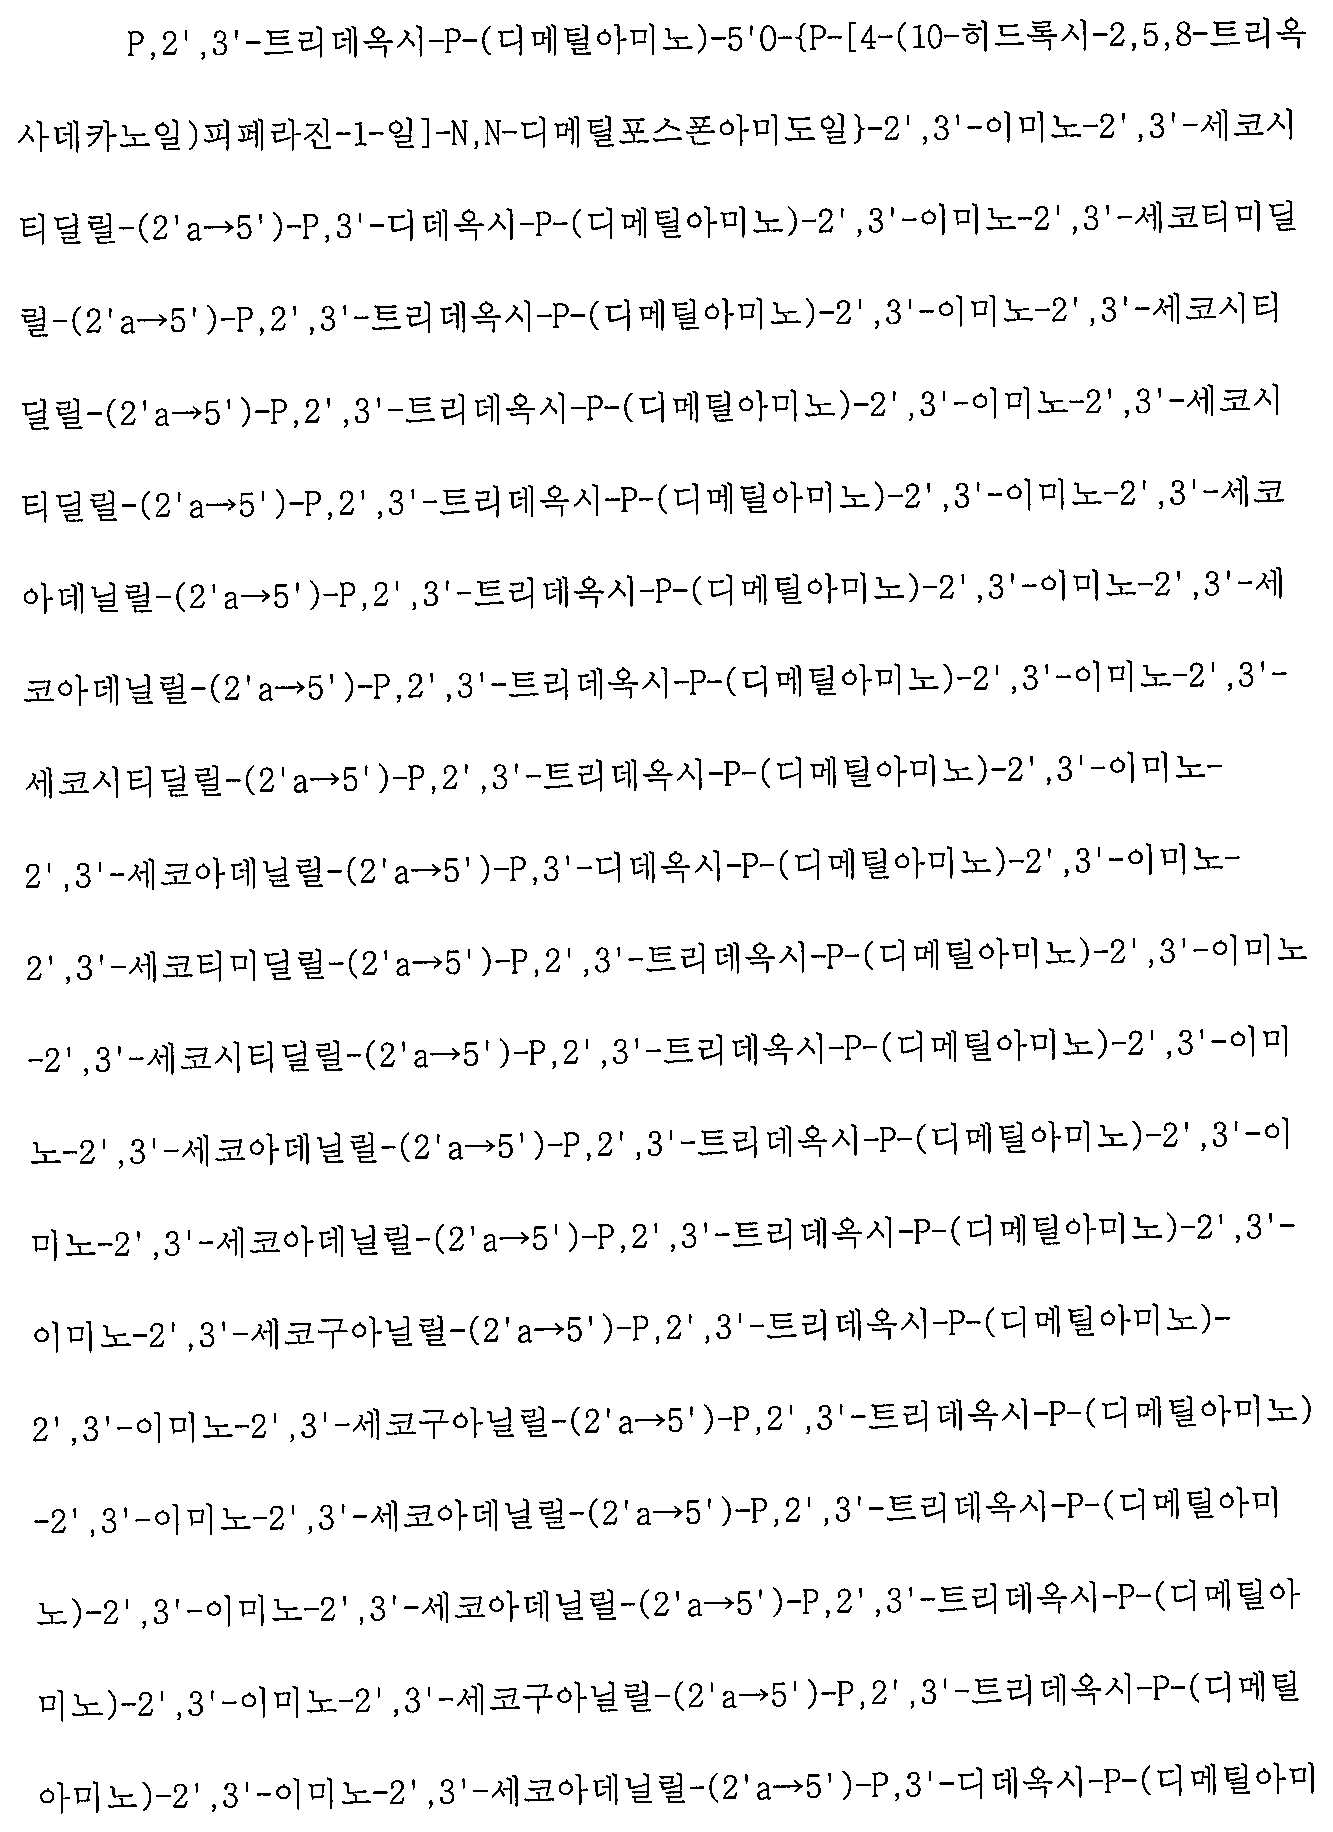 P,2',3'-트리데옥시-P-(디메틸아미노)-5'O-{P-[4-(10-히드록시-2,5,8-트리옥
사데카노일)피페라진-1-일]-N,N-디메틸포스폰아미도일}-2',3'-이미노-2',3'-세코시
티딜릴-(2'a→5')-P,3'-디데옥시-P-(디메틸아미노)-2',3'-이미노-2',3'-세코티미딜
릴-(2'a→5')-P,2',3'-트리데옥시-P-(디메틸아미노)-2',3'-이미노-2',3'-세코시티
딜릴-(2'a→5')-P,2',3'-트리데옥시-P-(디메틸아미노)-2',3'-이미노-2',3'-세코시
티딜릴-(2'a→5')-P,2',3'-트리데옥시-P-(디메틸아미노)-2',3'-이미노-2',3'-세코
아데닐릴-(2'a→5')-P,2',3'-트리데옥시-P-(디메틸아미노)-2',3'-이미노-2',3'-세
코아데닐릴-(2'a→5')-P,2',3'-트리데옥시-P-(디메틸아미노)-2',3'-이미노-2',3'-
세코시티딜릴-(2'a→5')-P,2',3'-트리데옥시-P-(디메틸아미노)-2',3'-이미노-
2',3'-세코아데닐릴-(2'a→5')-P,3'-디데옥시-P-(디메틸아미노)-2',3'-이미노-
2',3'-세코티미딜릴-(2'a→5')-P,2',3'-트리데옥시-P-(디메틸아미노)-2',3'-이미노
-2',3'-세코시티딜릴-(2'a→5')-P,2',3'-트리데옥시-P-(디메틸아미노)-2',3'-이미
노-2',3'-세코아데닐릴-(2'a→5')-P,2',3'-트리데옥시-P-(디메틸아미노)-2',3'-이
미노-2',3'-세코아데닐릴-(2'a→5')-P,2',3'-트리데옥시-P-(디메틸아미노)-2',3'-
이미노-2',3'-세코구아닐릴-(2'a→5')-P,2',3'-트리데옥시-P-(디메틸아미노)-
2',3'-이미노-2',3'-세코구아닐릴-(2'a→5')-P,2',3'-트리데옥시-P-(디메틸아미노)
-2',3'-이미노-2',3'-세코아데닐릴-(2'a→5')-P,2',3'-트리데옥시-P-(디메틸아미
노)-2',3'-이미노-2',3'-세코아데닐릴-(2'a→5')-P,2',3'-트리데옥시-P-(디메틸아
미노)-2',3'-이미노-2',3'-세코구아닐릴-(2'a→5')-P,2',3'-트리데옥시-P-(디메틸
아미노)-2',3'-이미노-2',3'-세코아데닐릴-(2'a→5')-P,3'-디데옥시-P-(디메틸아미